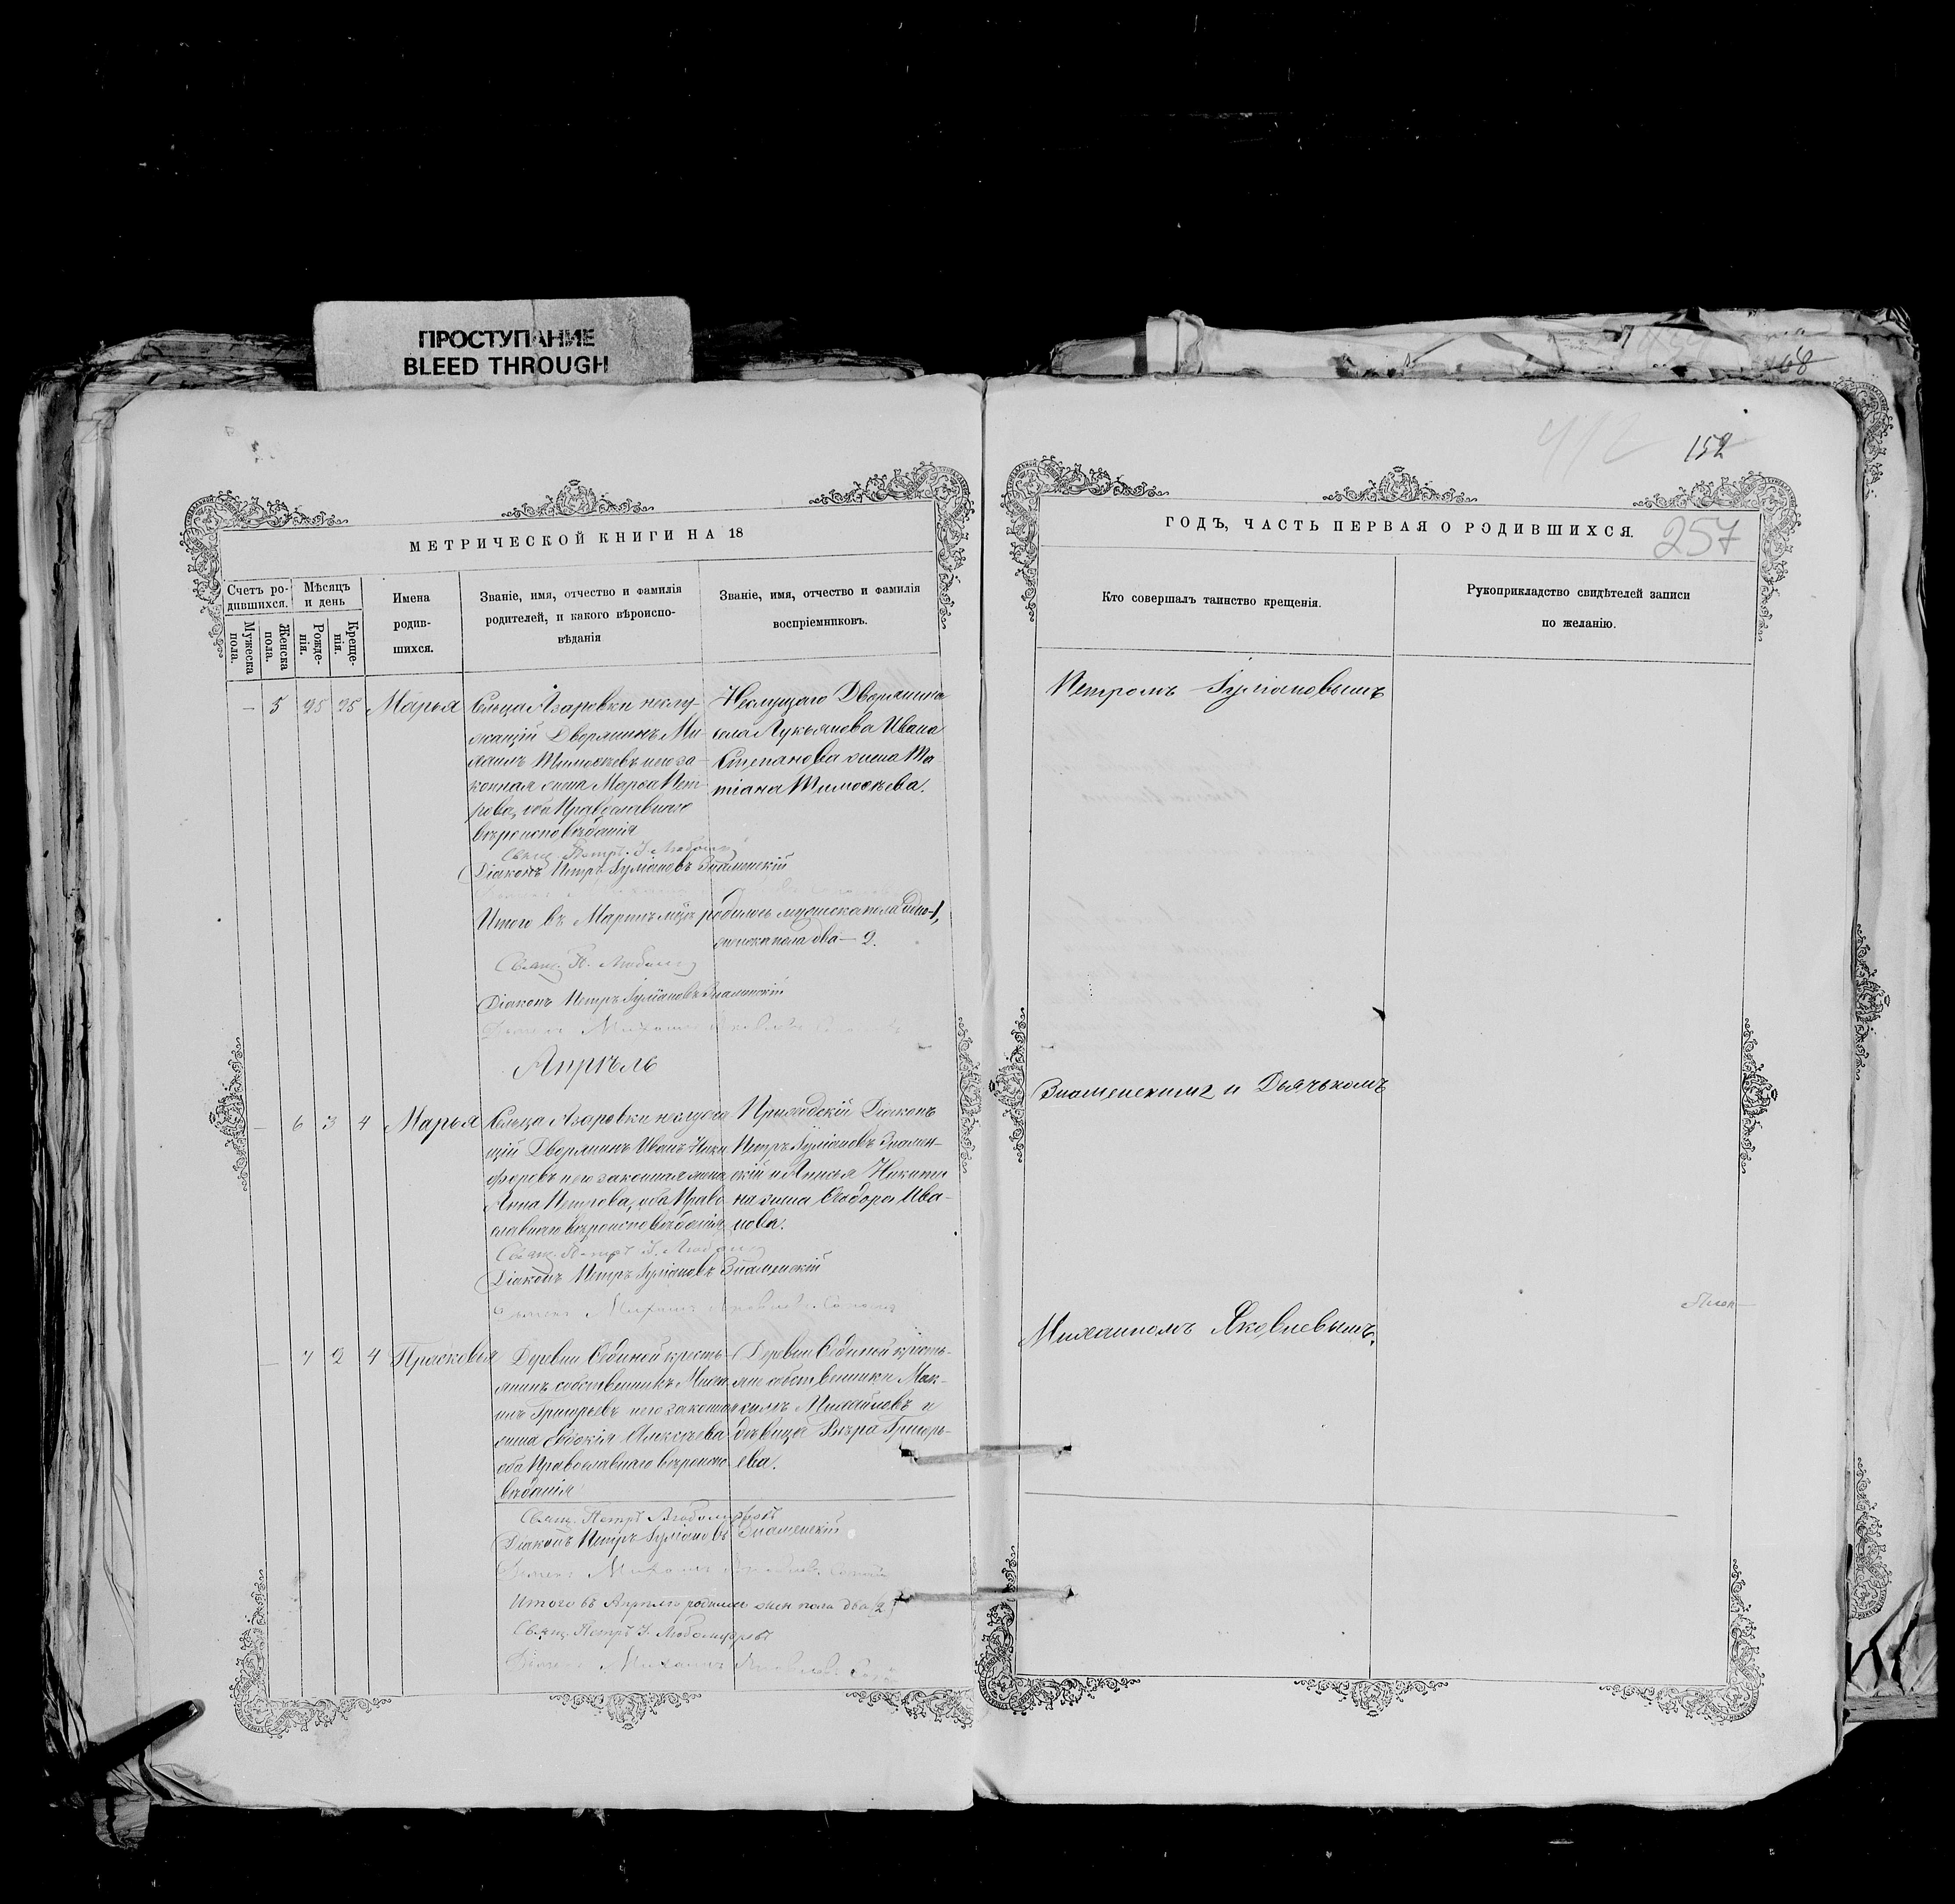 ПРОСТУПАНИЕ
BLEED THROUGH
68
412
152
257
МЕТРИЧЕСКОЙ КНИГИ НА 18
Счетъ ро-
дившихся.
Мѣсяцъ
и день
Мужеска
пола.
Женска
пола.
Рожде-
нія.
Креще-
нія.
Имена
родив-
шихся.
Званіе, имя, отчество и фамилія
родителей, и какого вѣроиспо-
вѣданія
Званіе, имя, отчество и фамилія
воспріемниковъ.
— 5 25 25 Марья
Сельца Азаровки неслу-
жащій Дворянинъ Ми-
хаилъ Тимоѳеевъ и его за-
конная жена Марѳа Пет-
рова, оба Православнаго
вѣроисповѣданія
Неслужащаго Дворянина
села Лукьянова Ивана
Степанова жена Та-
тіана Тимоѳеева.
Свящ. Петръ І.
Діаконъ Петръ Іуліановъ Знаменскій
Итого въ Мартѣ мцѣ родилось мужеска пола одно-1,
женска пола два — 2.
Свящ. П.
Діаконъ Петръ Іуліановъ Знаменскій
Михаилъ
Апрѣль
— 6 3 4 Марья
Сельца Азаровки неслужа
щій Дворянинъ Иванъ Ники
форовъ и его законная жена
Анна Петрова, оба Право
славнаго вѣроисповѣданія
Приходскій Діаконъ
Петръ Іуліановъ Знамен-
скій и Анисья Никити
на жена Ѳеодора Ива-
нова.
Свящ. Петръ І.
Діаконъ Петръ Іуліановъ Знаменскій
Михаилъ
— 7 2 4 Прасковья
Деревни Сединой кресть-
янинъ собственникъ Миха
илъ Григорьевъ и его законная
жена Евдокія Алексѣева
оба Православнаго вѣроиспо
вѣданія
Деревни Сединой кресть-
яне собственники Мак-
симъ Михайловъ и
дѣвица Вѣра Григорь-
ева.
Свящ. Петръ
Діаконъ Петръ Іуліановъ Знаменскій
Михаилъ
Итого въ Апрѣлѣ родилось жен. пола два (2)
Свящ. Петръ І.
Михаилъ Яковлевъ
ГОДЪ, ЧАСТЬ ПЕРВАЯ О РОДИВШИХСЯ.
Кто совершалъ таинство крещенія.
Рукоприкладство свидѣтелей записи
по желанію.
Петромъ Іуліановымъ
Знаменскимъ и Дьячькомъ
Михаиломъ Яковлевымъ.